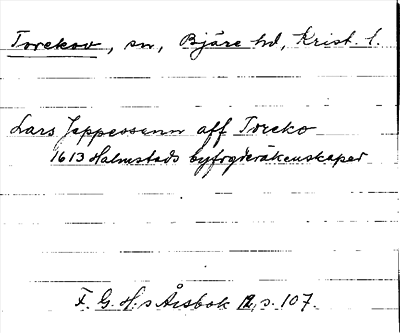 Torekov, sn, Bjäre hd, Krist. l.
Lars Jeppessenn aff Toreko
1613 Halmstads byfogderäkenskaper
F. G. H:s Årsbok 12, s. 107.